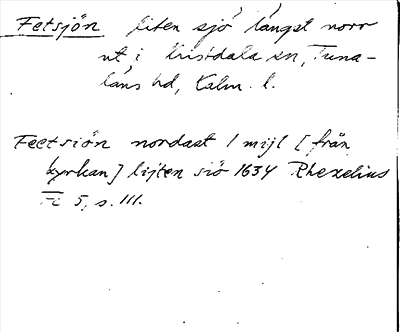 Fetsjön liten sjö längst norr
ut i Kristdala sn, Tuna-
läns hd, Kalm. l.
Feetsiön nordast 1 mijl [från
kyrkan] lijten siö 1634 Rhezelius
Fc 5, s. 111.